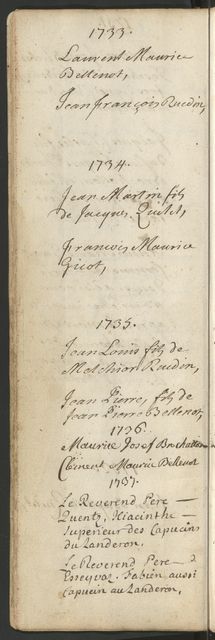 1733.
Laurent Maurice
Bellenot,
Jean françois Ruedin,
1734.
Jean Martin fils
de Jacques Quelet,
François Maurice
Gicot,
1735.
Jean Louis fils de
Melchior Ruedin,
Jean Pierre, fils de
Jean Pierre Bellenot,
1736.
Maurice Josef
Clement Maurice Bellenot
1737.
Le Reverend Pere
Hiacinthe
Superieur des Capucins
du Landeron.
Le Reverend Pere
Fabien aussi
Capucin au Landeron,